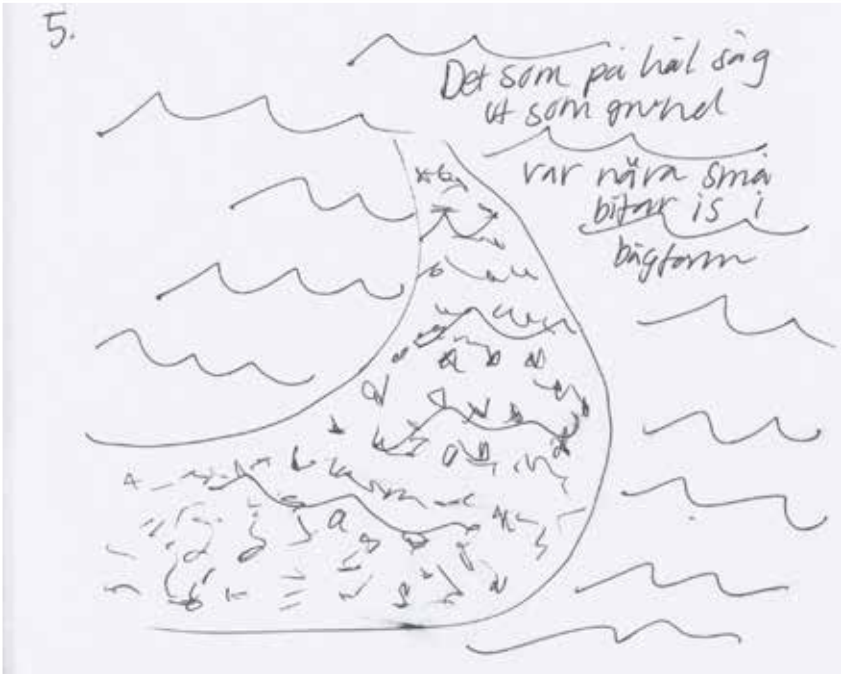 5.
Det som på håll såg
ut som grund
var nära små
bitar is i
bågform